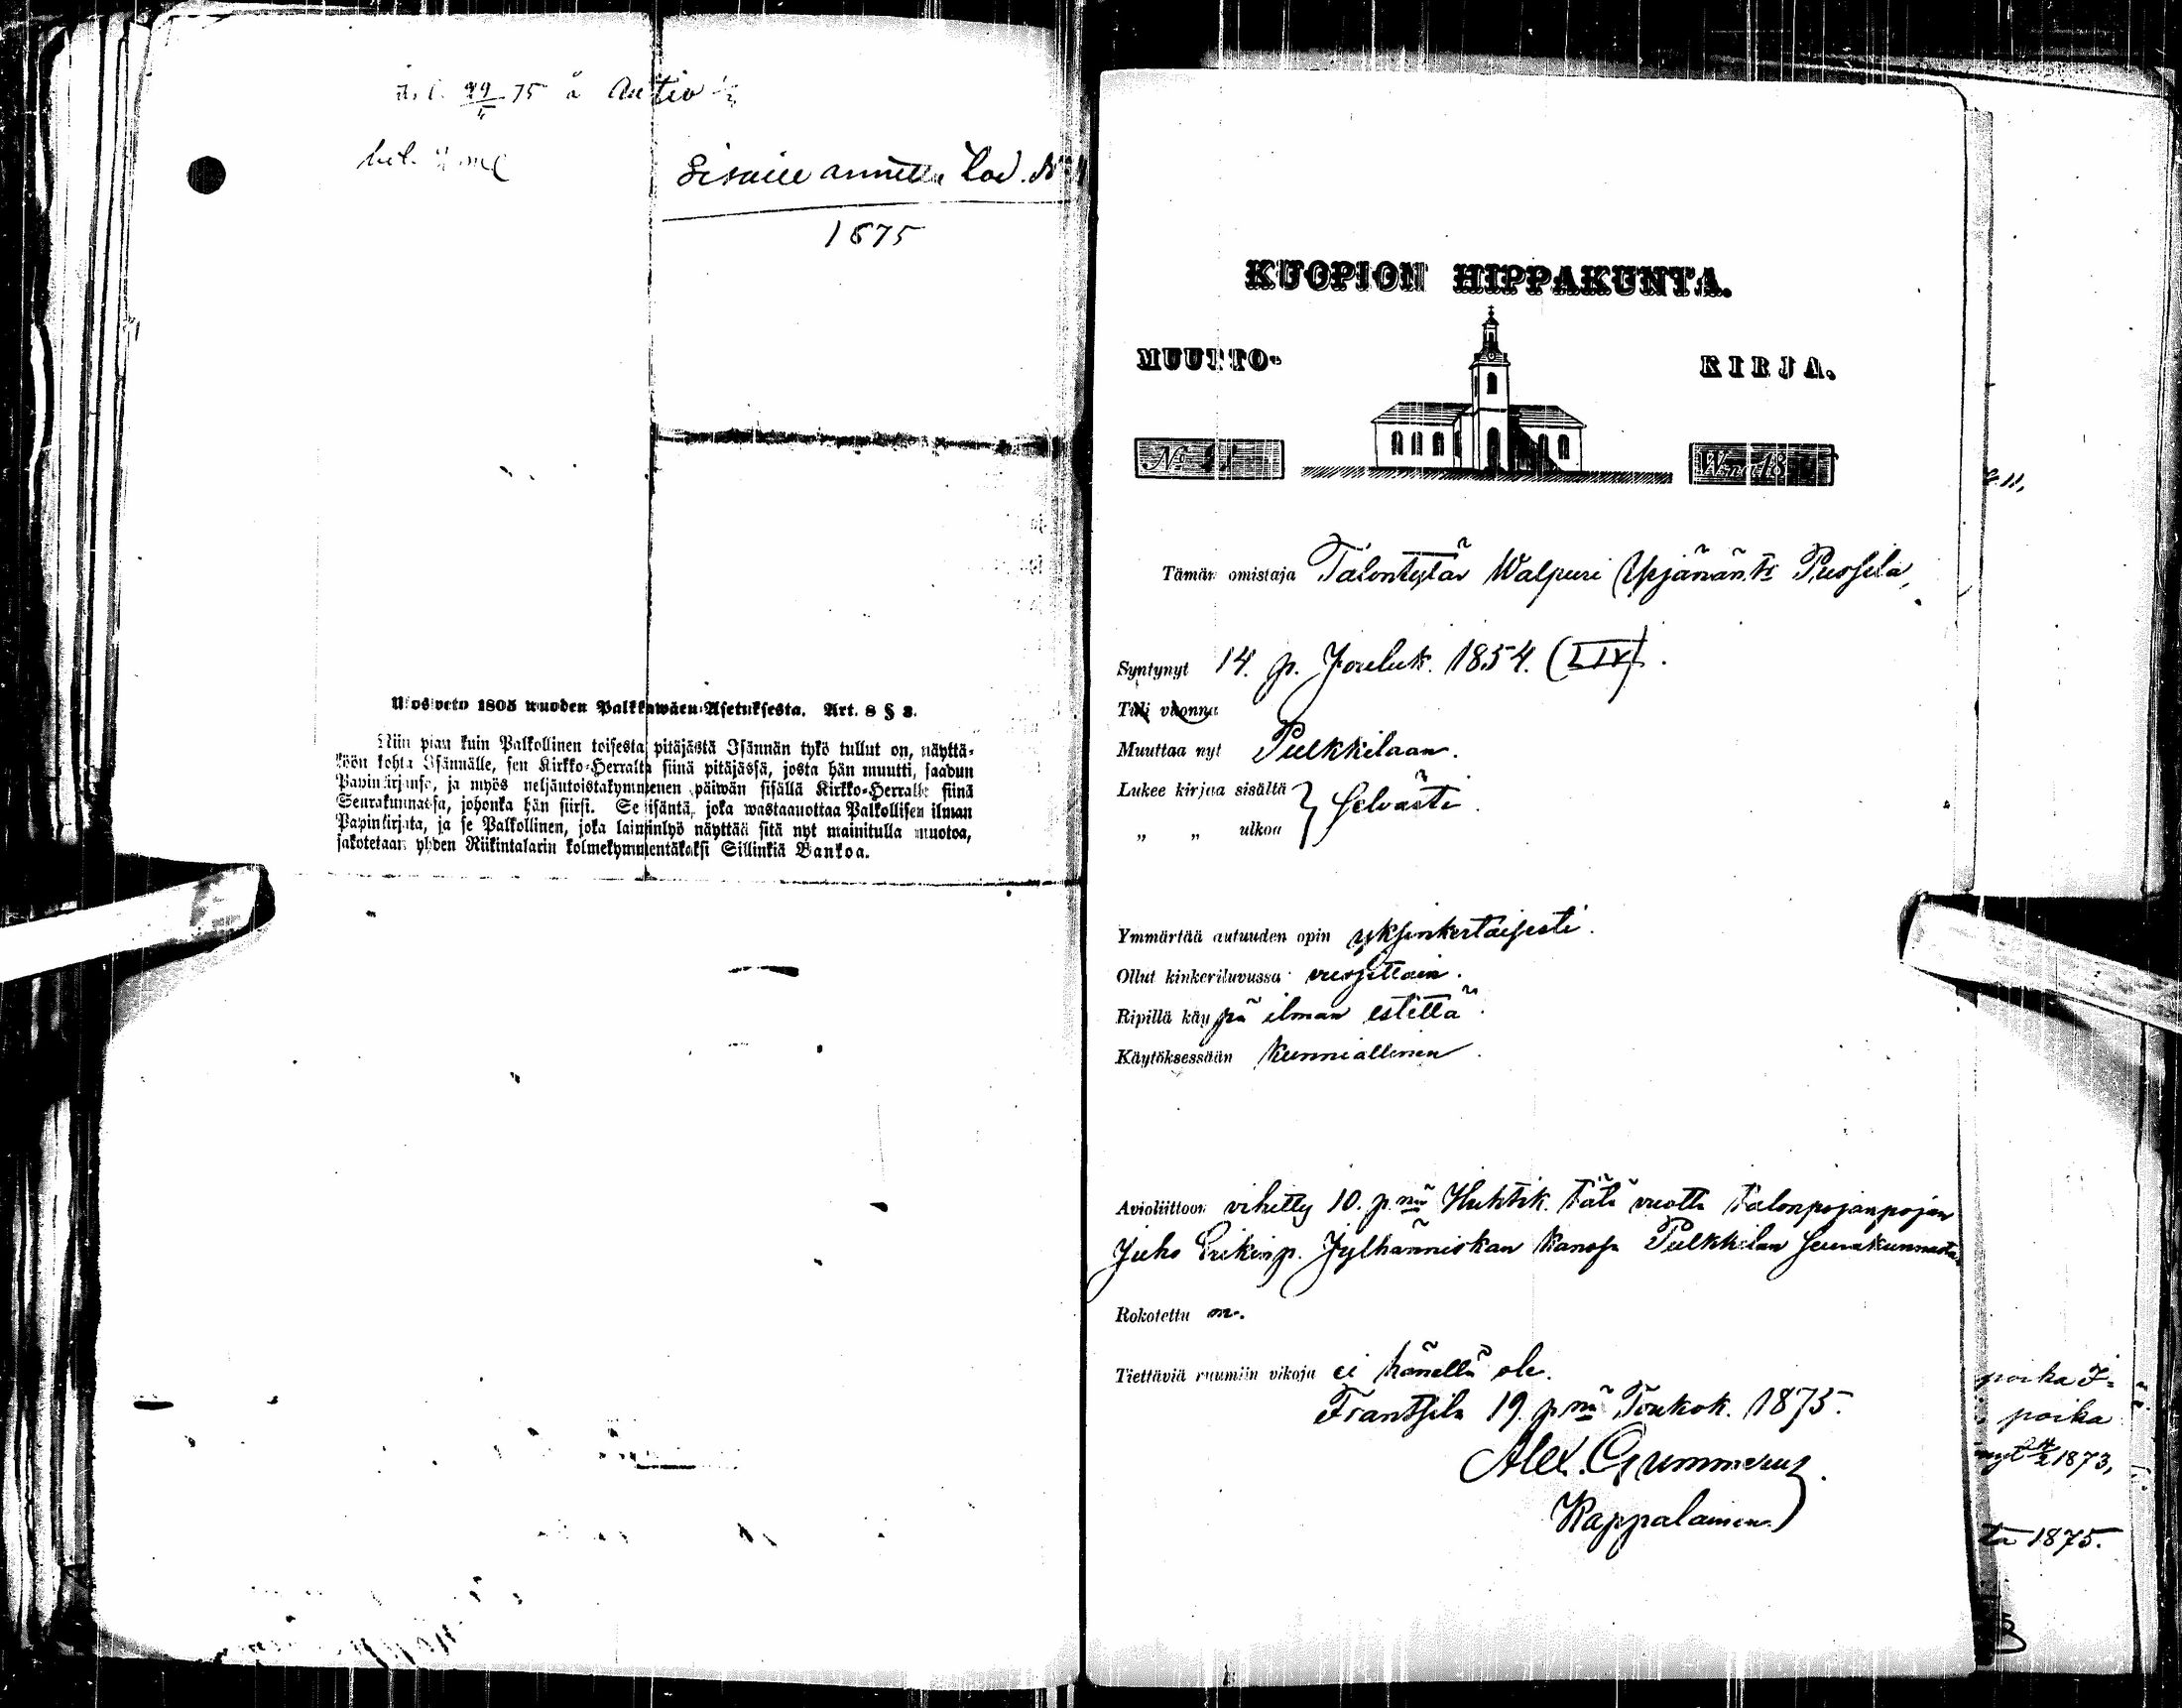 29/5 75 å Autio
Sisälle annettu Tod. N:
1875
Ulosveto 1805 wuoden Palkkawäen Asetuksesta. Art. 8 § 3.
Niin pian kuin Palkollinen toisesta pitäjästä Isännän tykö tullut on, näyttä-
köön kohta Isännälle, sen Kirkko-Herralta siinä pitäjässä, josta hän muutti, saadun
Papinkirjansa, ja myös neljäntoistakymmenen päiwän sisällä Kirkko-Herralle siinä
Seurakunnassa, johonka hän siirsi. Se isäntä, joka wastaanottaa Palkollisen ilman
Papinkirjata, ja se Palkollinen, joka lainsinlyö näyttää sitä nyt mainitulla muotoa,
sakotetaan yhden Riikintalarin kolmekymmentäkaksi Sillinkiä Bankoa.
KUOPION HIPPAKUNTA.
MUUTTO-
KIRJA.
N:
W:na 18
Tämän omistaja Talontytär Walpuri Yrjänän.tr Pussila,
Syntynyt 14. p. Jouluk. 1854. (LIV).
Tuli vuonna
Muuttaa nyt Pulkkilaan.
Lukee kirjaa sisältä } selvästi.
„ „ ulkoa
Ymmärtää autuuden opin yksinkertaisesti.
Ollut kinkeriluvussa vuosittain.
Ripillä käypä ilman estettä.
Käytöksessään kunniallinen.
Avioliittoon vihitty 10. p.nä Huhtik. tätä vuotta talonpojanpojan
Juho Erikinp. Jylhänniskan kanssa Pulkkilan seurakunnasta
Rokotettu on.
Tiettäviä ruumiin vikoja ei hänellä ole.
Frantsila 19. p.nä Toukok. 1875.
Alex. Gummerus.
Kappalainen.
poika J-
poika
1873,
ta 1875.